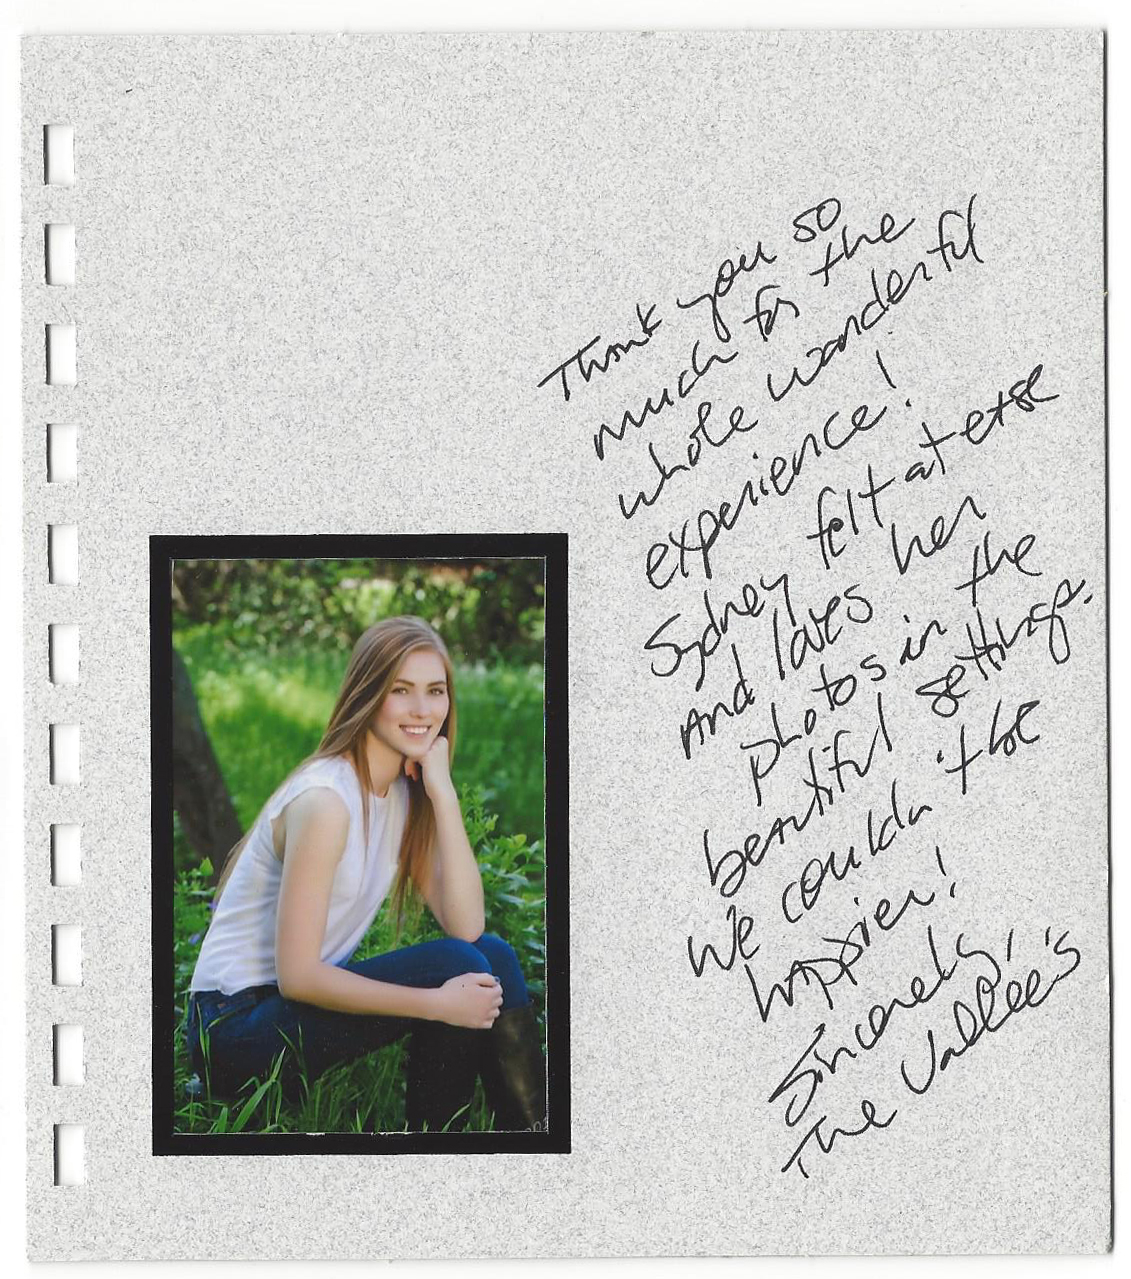 Thank you so
much for the
whole wonderful
experience!
Sydney felt at ease
and loves her
photos in the
beautiful settings.
We couldn't be
happier!
Sincerely,
The Vallee's